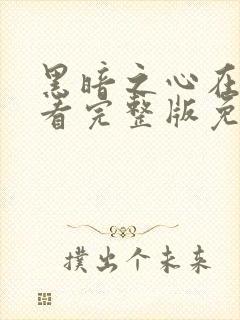 黑暗之心在
看完整版免
撲出个未来